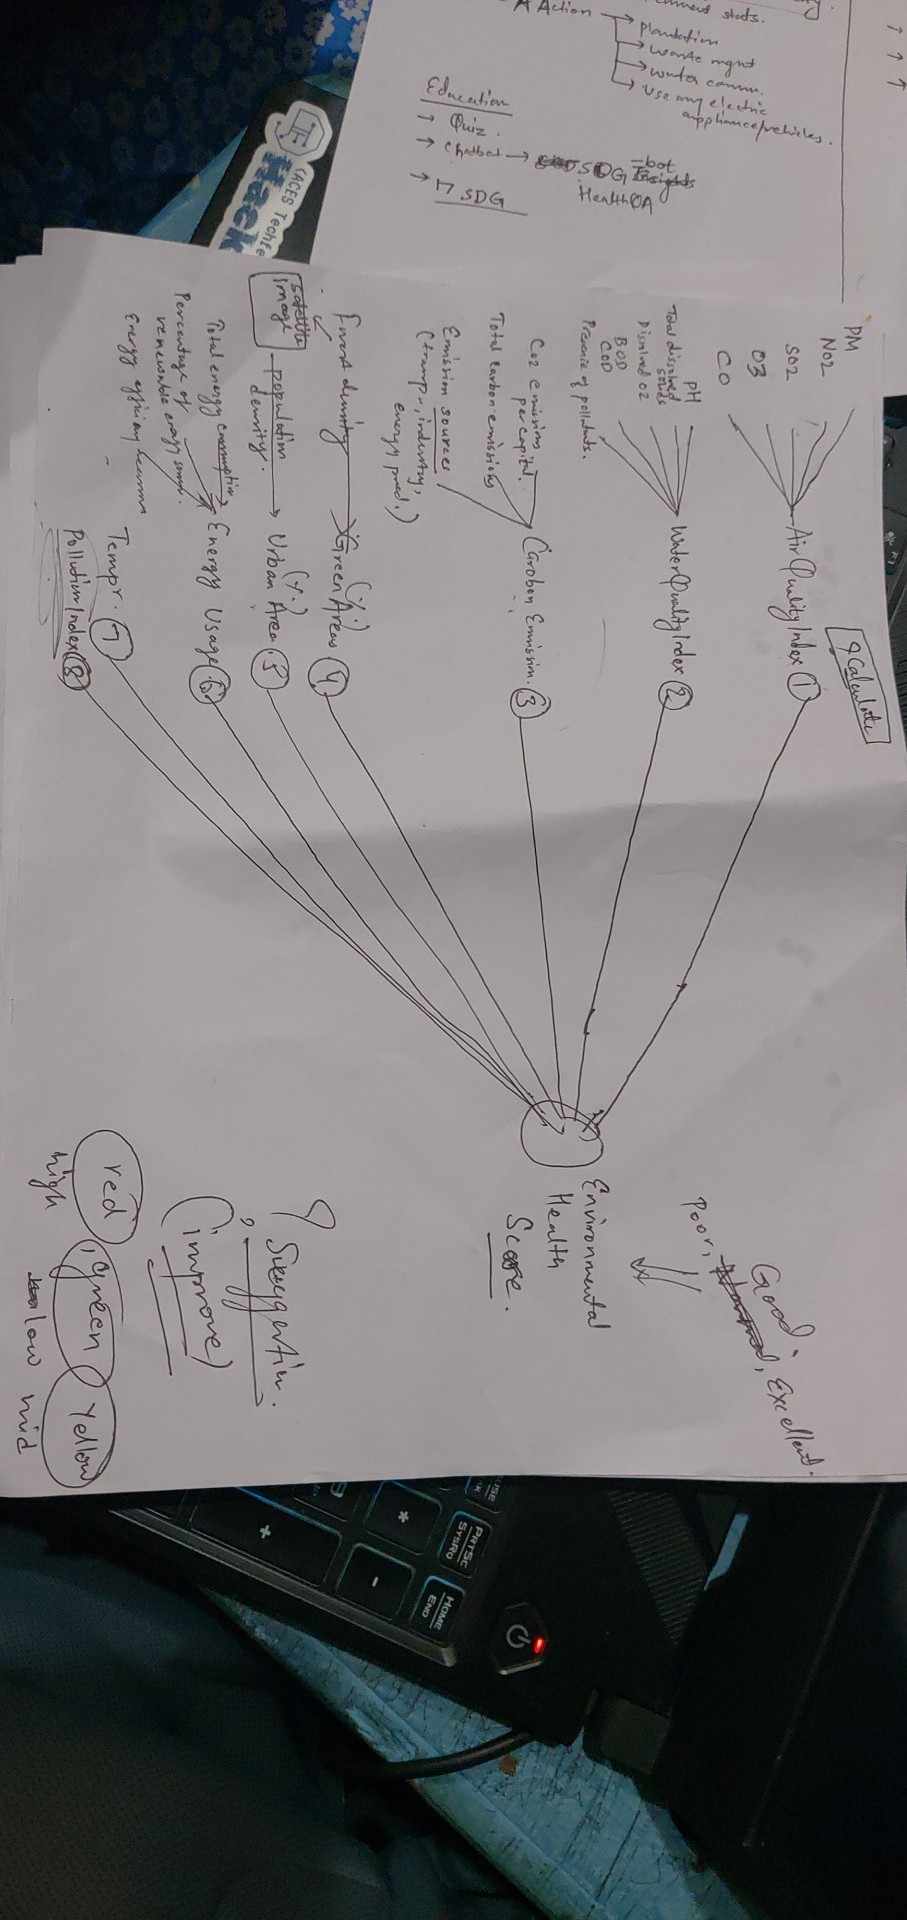 A Action → Plantation
→ waste mgnt
→ water
→ Use any electric
appliance/vehicles.
Education
→ Quiz.
→ Chatbot → SDG -bot
HealthQA
→ 17 SDG
CACES Techfe
Hack
Calculate
PM
NO2
SO2
O3
CO
Air Quality Index 1
pH
Total dissolved
solids
Disolved O2
BOD
COD
Presence of pollutants.
Water Quality Index 2
CO2 emissions
per capital.
Total carbon emissions
Emission sources
(transp., industry,
energy prod.)
Carobon Emission. 3
Forest density
Green Areas (%) 4
Satellite
image
population
density.
Urban Area (%) 5
Total energy consumption
Percentage of
renewable energy
Energy Usage 6
Tempr. 7
Pollution Index 8
Environmental
Health
Score.
Poor, Good, Excellent.
(improve)
red, green, Yellow
high low mid
PRTSC
SYSRQ
HOME
END
9
*
+
-